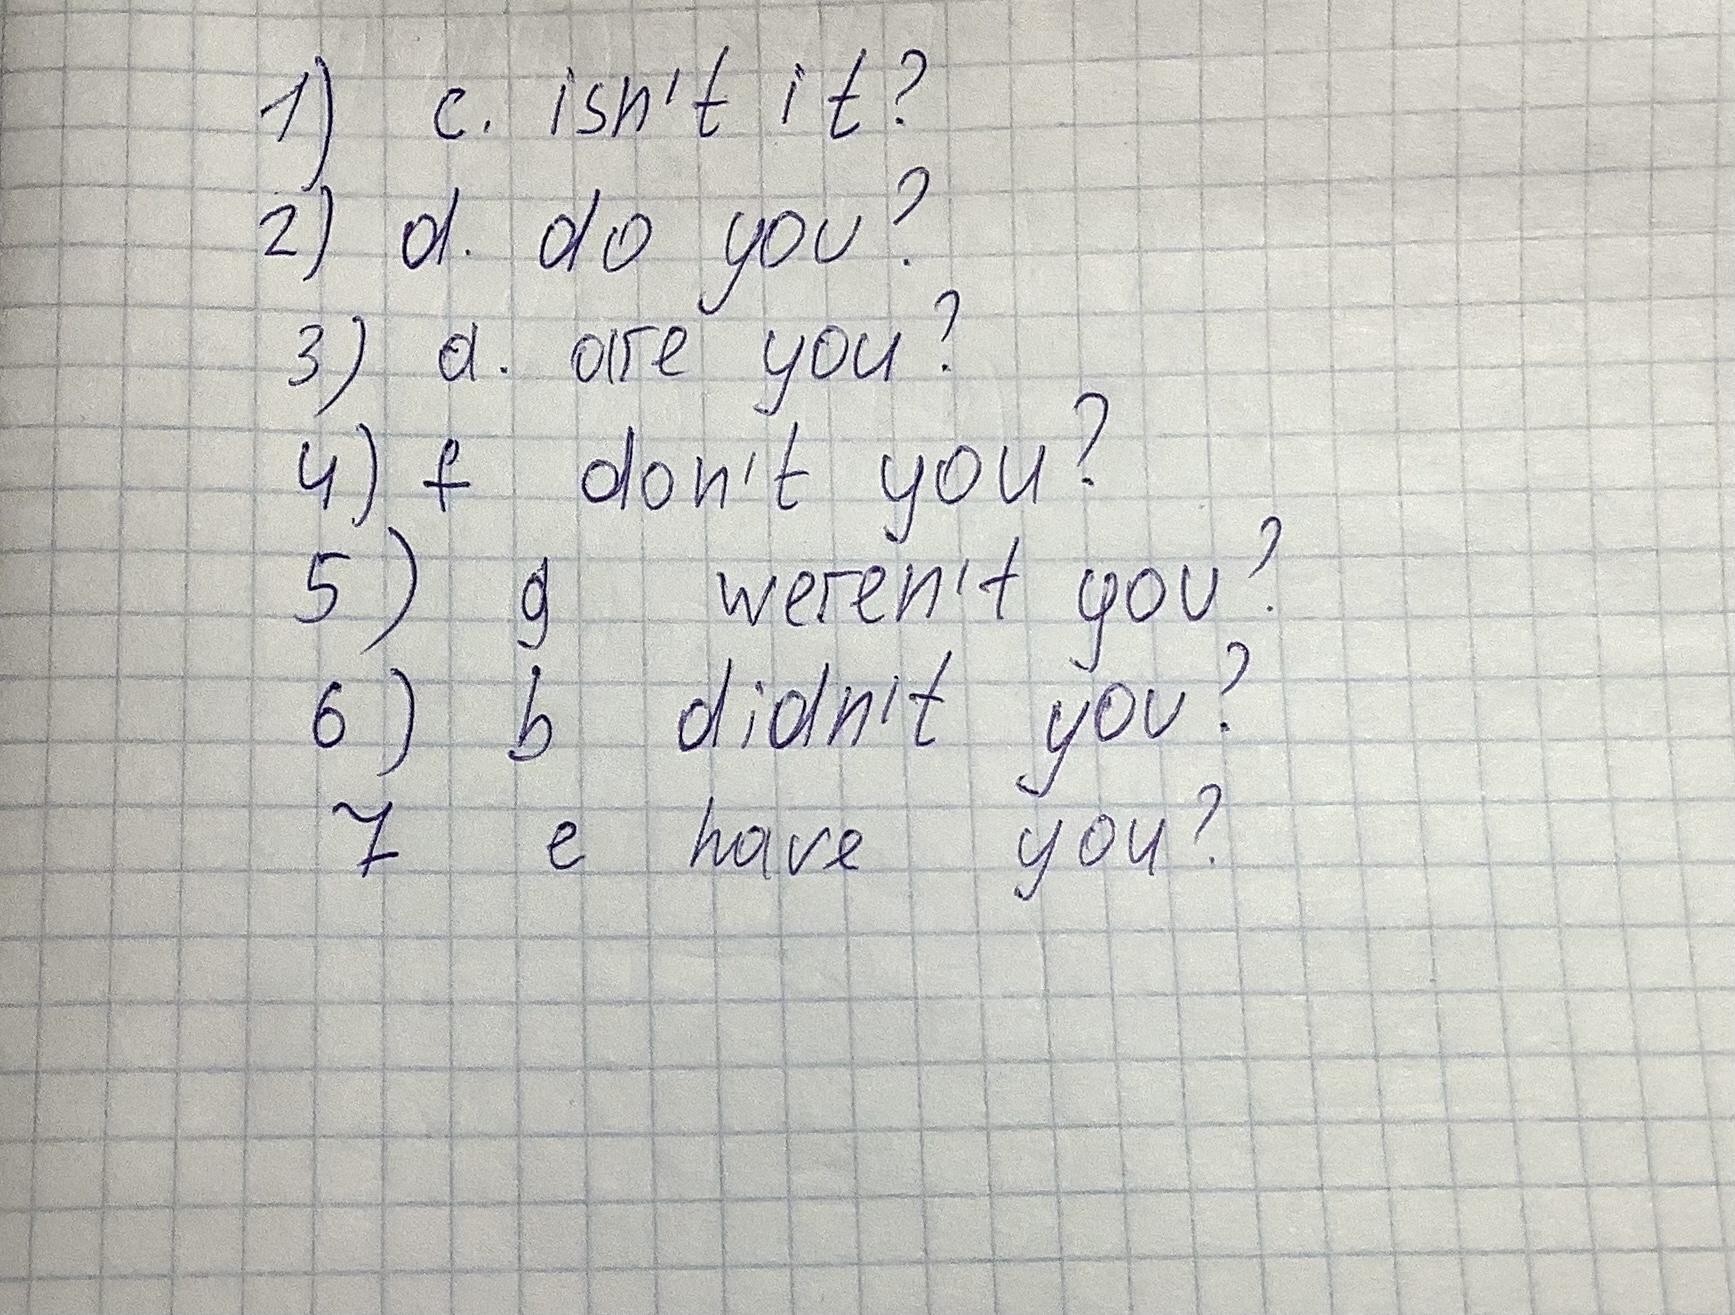 1) c. isn't it?
2) d. do you?
3) a. are you?
4) f don't you?
5) g weren't you?
6) b didn't you?
7 e have you?